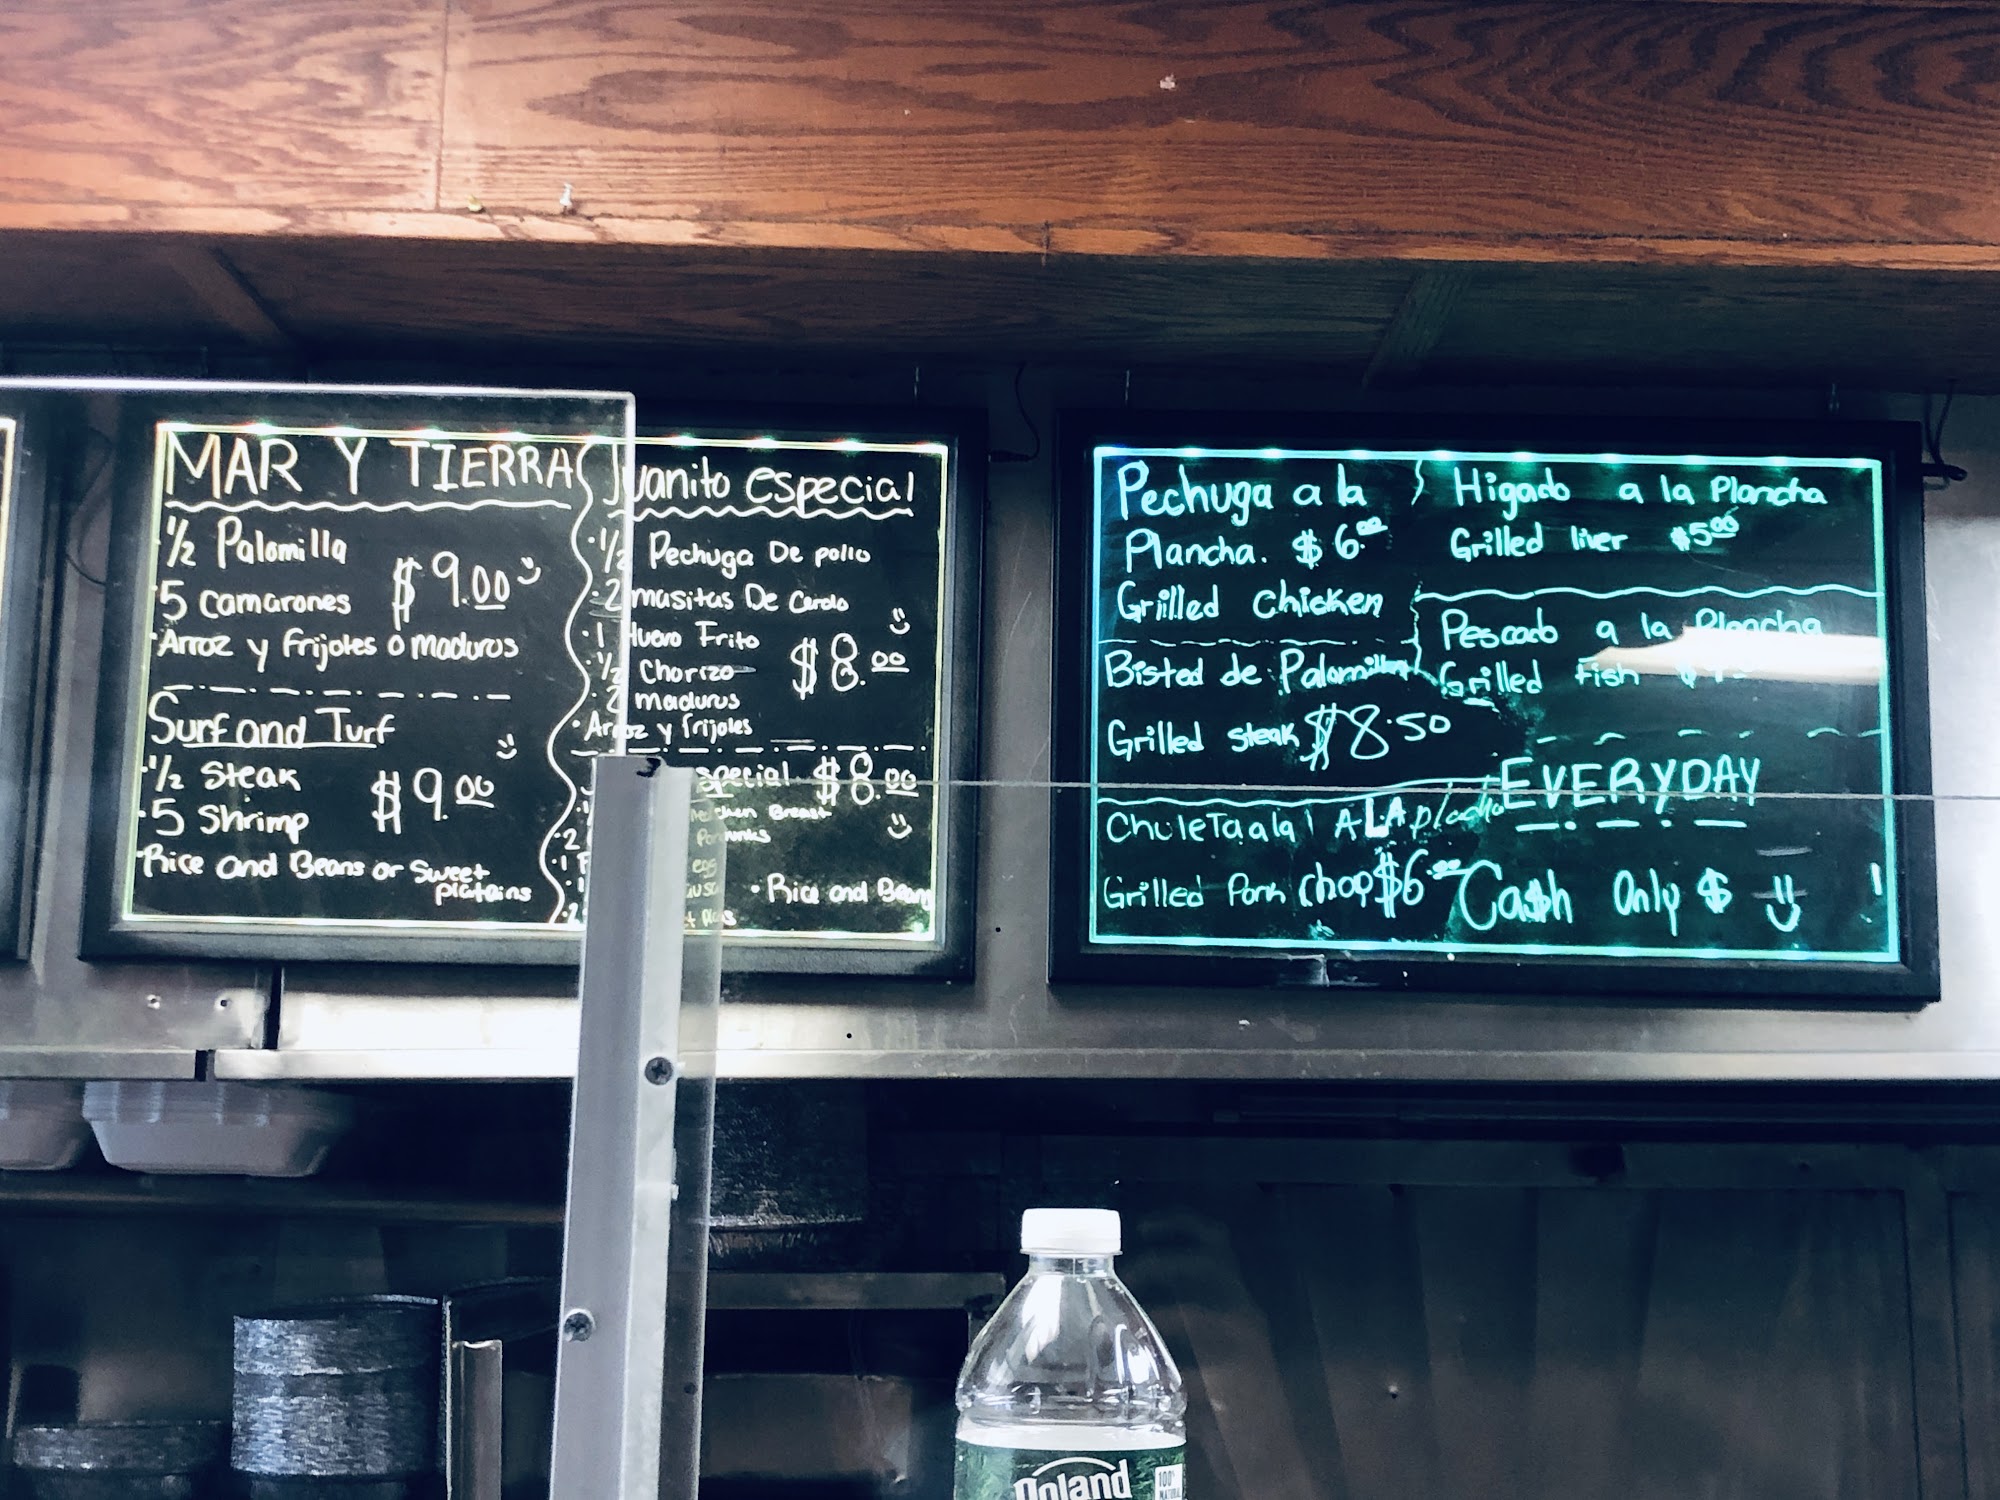 MAR Y TIERRA
1/2 Palomilla
$9.00
5 camarones
Arroz y Frijoles o maduros
Surf and Turf
1/2 Steak
$9.00
5 Shrimp
Rice and Beans or Sweet
platains
Juanito especial
1/2 Pechuga De pollo
2 masitas De Cerdo
1 Huevo Frito
$8.00
1/2 Chorizo
2 maduros
Arroz y frijoles
special $8.00
Breast
egg
Rice and Beans
Pechuga a la
Plancha. $6.00
Grilled chicken
Bisted de Palomilla
Grilled steak $8.50
ChuleTa ala LA
Grilled Pork chop $6.00
Higado a la Plancha
Grilled liver $5.00
Pescado a la Plancha
Grilled Fish
EVERYDAY
Cash Only $
Poland
100%